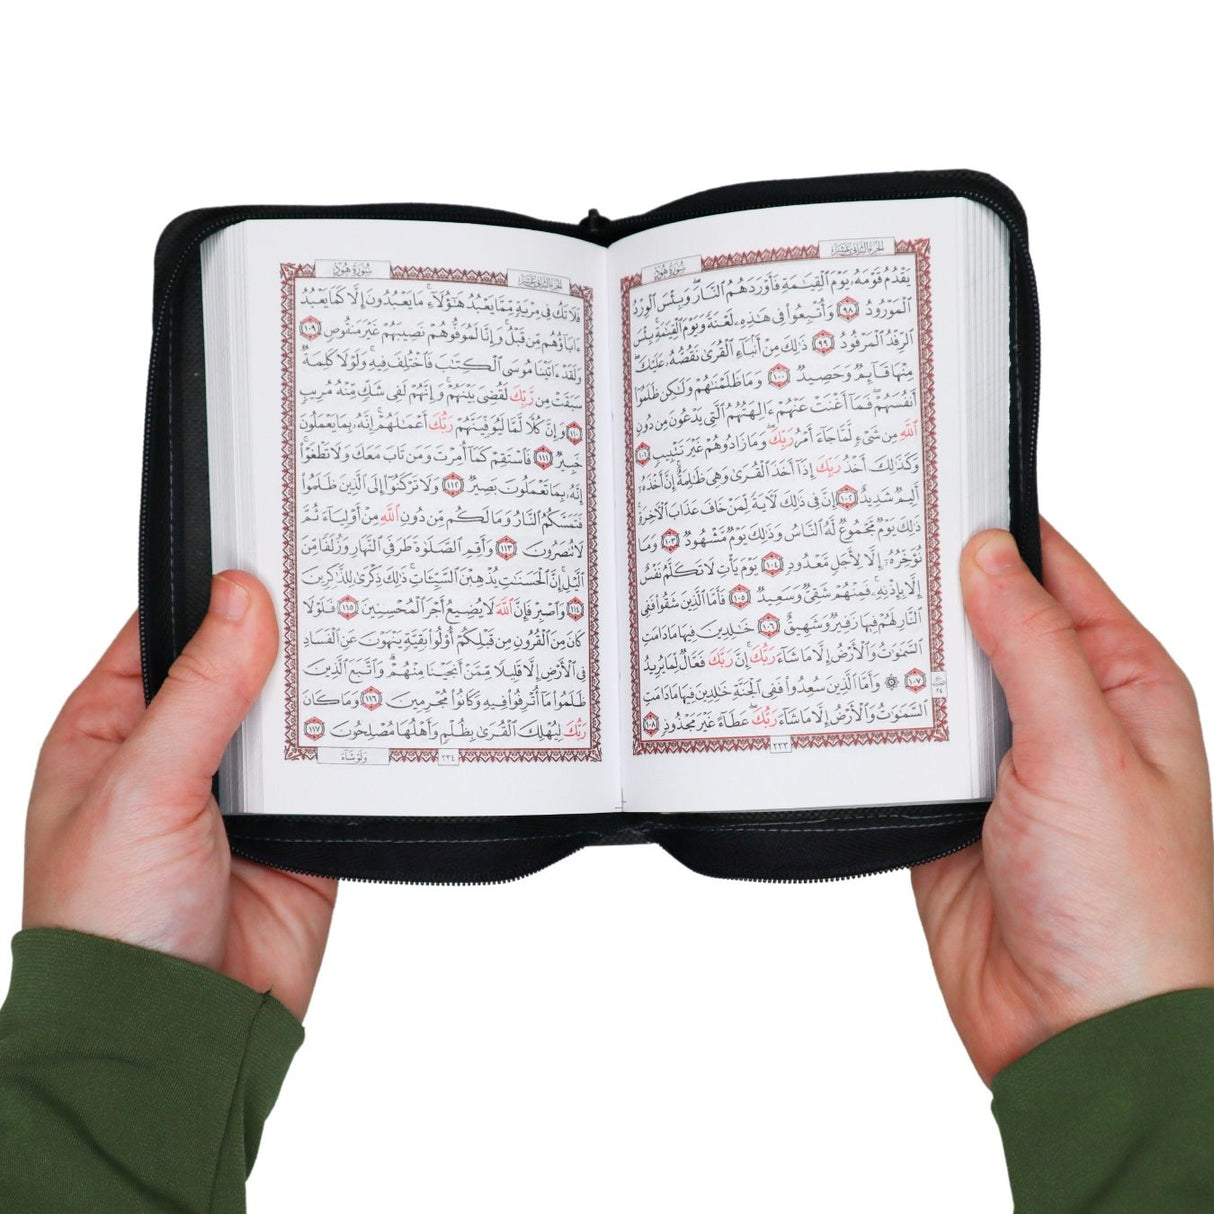 الجزء الثاني عشر سورة هود
يَقْدُمُ قَوْمَهُۥ يَوْمَ ٱلْقِيَـٰمَةِ فَأَوْرَدَهُمُ ٱلنَّارَ ۖ وَبِئْسَ ٱلْوِرْدُ
ٱلْمَوْرُودُ ٩٨ وَأُتْبِعُوا۟ فِى هَـٰذِهِۦ لَعْنَةً وَيَوْمَ ٱلْقِيَـٰمَةِ ۚ بِئْسَ
ٱلرِّفْدُ ٱلْمَرْفُودُ ٩٩ ذَٰلِكَ مِنْ أَنۢبَآءِ ٱلْقُرَىٰ نَقُصُّهُۥ عَلَيْكَ ۖ
مِنْهَا قَآئِمٌ وَحَصِيدٌ ١٠٠ وَمَا ظَلَمْنَـٰهُمْ وَلَـٰكِن ظَلَمُوٓا۟
أَنفُسَهُمْ ۖ فَمَآ أَغْنَتْ عَنْهُمْ ءَالِهَتُهُمُ ٱلَّتِى يَدْعُونَ مِن دُونِ
ٱللَّهِ مِن شَىْءٍ لَّمَّا جَآءَ أَمْرُ رَبِّكَ ۖ وَمَا زَادُوهُمْ غَيْرَ تَتْبِيبٍ ١٠١
وَكَذَٰلِكَ أَخْذُ رَبِّكَ إِذَآ أَخَذَ ٱلْقُرَىٰ وَهِىَ ظَـٰلِمَةٌ ۚ إِنَّ أَخْذَهُۥٓ
أَلِيمٌ شَدِيدٌ ١٠٢ إِنَّ فِى ذَٰلِكَ لَـَٔايَةً لِّمَنْ خَافَ عَذَابَ ٱلْـَٔاخِرَةِ ۚ
ذَٰلِكَ يَوْمٌ مَّجْمُوعٌ لَّهُ ٱلنَّاسُ وَذَٰلِكَ يَوْمٌ مَّشْهُودٌ ١٠٣ وَمَا
نُؤَخِّرُهُۥٓ إِلَّا لِأَجَلٍ مَّعْدُودٍ ١٠٤ يَوْمَ يَأْتِ لَا تَكَلَّمُ نَفْسٌ
إِلَّا بِإِذْنِهِۦ ۚ فَمِنْهُمْ شَقِىٌّ وَسَعِيدٌ ١٠٥ فَأَمَّا ٱلَّذِينَ شَقُوا۟ فَفِى
ٱلنَّارِ لَهُمْ فِيهَا زَفِيرٌ وَشَهِيقٌ ١٠٦ خَـٰلِدِينَ فِيهَا مَا دَامَتِ
ٱلسَّمَـٰوَٰتُ وَٱلْأَرْضُ إِلَّا مَا شَآءَ رَبُّكَ ۚ إِنَّ رَبَّكَ فَعَّالٌ لِّمَا يُرِيدُ
١٠٧ ۞ وَأَمَّا ٱلَّذِينَ سُعِدُوا۟ فَفِى ٱلْجَنَّةِ خَـٰلِدِينَ فِيهَا مَا دَامَتِ
ٱلسَّمَـٰوَٰتُ وَٱلْأَرْضُ إِلَّا مَا شَآءَ رَبُّكَ ۖ عَطَآءً غَيْرَ مَجْذُوذٍ ١٠٨
٢٣٣
الجزء الثاني عشر سورة هود
فَلَا تَكُ فِى مِرْيَةٍ مِّمَّا يَعْبُدُ هَـٰٓؤُلَآءِ ۚ مَا يَعْبُدُونَ إِلَّا كَمَا يَعْبُدُ
ءَابَآؤُهُم مِّن قَبْلُ ۚ وَإِنَّا لَمُوَفُّوهُمْ نَصِيبَهُمْ غَيْرَ مَنقُوصٍ ١٠٩
وَلَقَدْ ءَاتَيْنَا مُوسَى ٱلْكِتَـٰبَ فَٱخْتُلِفَ فِيهِ ۚ وَلَوْلَا كَلِمَةٌ
سَبَقَتْ مِن رَّبِّكَ لَقُضِىَ بَيْنَهُمْ ۚ وَإِنَّهُمْ لَفِى شَكٍّ مِّنْهُ مُرِيبٍ
١١٠ وَإِنَّ كُلًّا لَّمَّا لَيُوَفِّيَنَّهُمْ رَبُّكَ أَعْمَـٰلَهُمْ ۚ إِنَّهُۥ بِمَا يَعْمَلُونَ
خَبِيرٌ ١١١ فَٱسْتَقِمْ كَمَآ أُمِرْتَ وَمَن تَابَ مَعَكَ وَلَا تَطْغَوْا۟ ۚ
إِنَّهُۥ بِمَا تَعْمَلُونَ بَصِيرٌ ١١٢ وَلَا تَرْكَنُوٓا۟ إِلَى ٱلَّذِينَ ظَلَمُوا۟
فَتَمَسَّكُمُ ٱلنَّارُ وَمَا لَكُم مِّن دُونِ ٱللَّهِ مِنْ أَوْلِيَآءَ ثُمَّ
لَا تُنصَرُونَ ١١٣ وَأَقِمِ ٱلصَّلَوٰةَ طَرَفَىِ ٱلنَّهَارِ وَزُلَفًا مِّنَ
ٱلَّيْلِ ۚ إِنَّ ٱلْحَسَنَـٰتِ يُذْهِبْنَ ٱلسَّيِّـَٔاتِ ۚ ذَٰلِكَ ذِكْرَىٰ لِلذَّٰكِرِينَ
١١٤ وَٱصْبِرْ فَإِنَّ ٱللَّهَ لَا يُضِيعُ أَجْرَ ٱلْمُحْسِنِينَ ١١٥ فَلَوْلَا
كَانَ مِنَ ٱلْقُرُونِ مِن قَبْلِكُمْ أُو۟لُوا۟ بَقِيَّةٍ يَنْهَوْنَ عَنِ ٱلْفَسَادِ
فِى ٱلْأَرْضِ إِلَّا قَلِيلًا مِّمَّنْ أَنجَيْنَا مِنْهُمْ ۗ وَٱتَّبَعَ ٱلَّذِينَ
ظَلَمُوا۟ مَآ أُتْرِفُوا۟ فِيهِ وَكَانُوا۟ مُجْرِمِينَ ١١٦ وَمَا كَانَ
رَبُّكَ لِيُهْلِكَ ٱلْقُرَىٰ بِظُلْمٍ وَأَهْلُهَا مُصْلِحُونَ ١١٧
٢٣٤ وَلَوْ شَآءَ